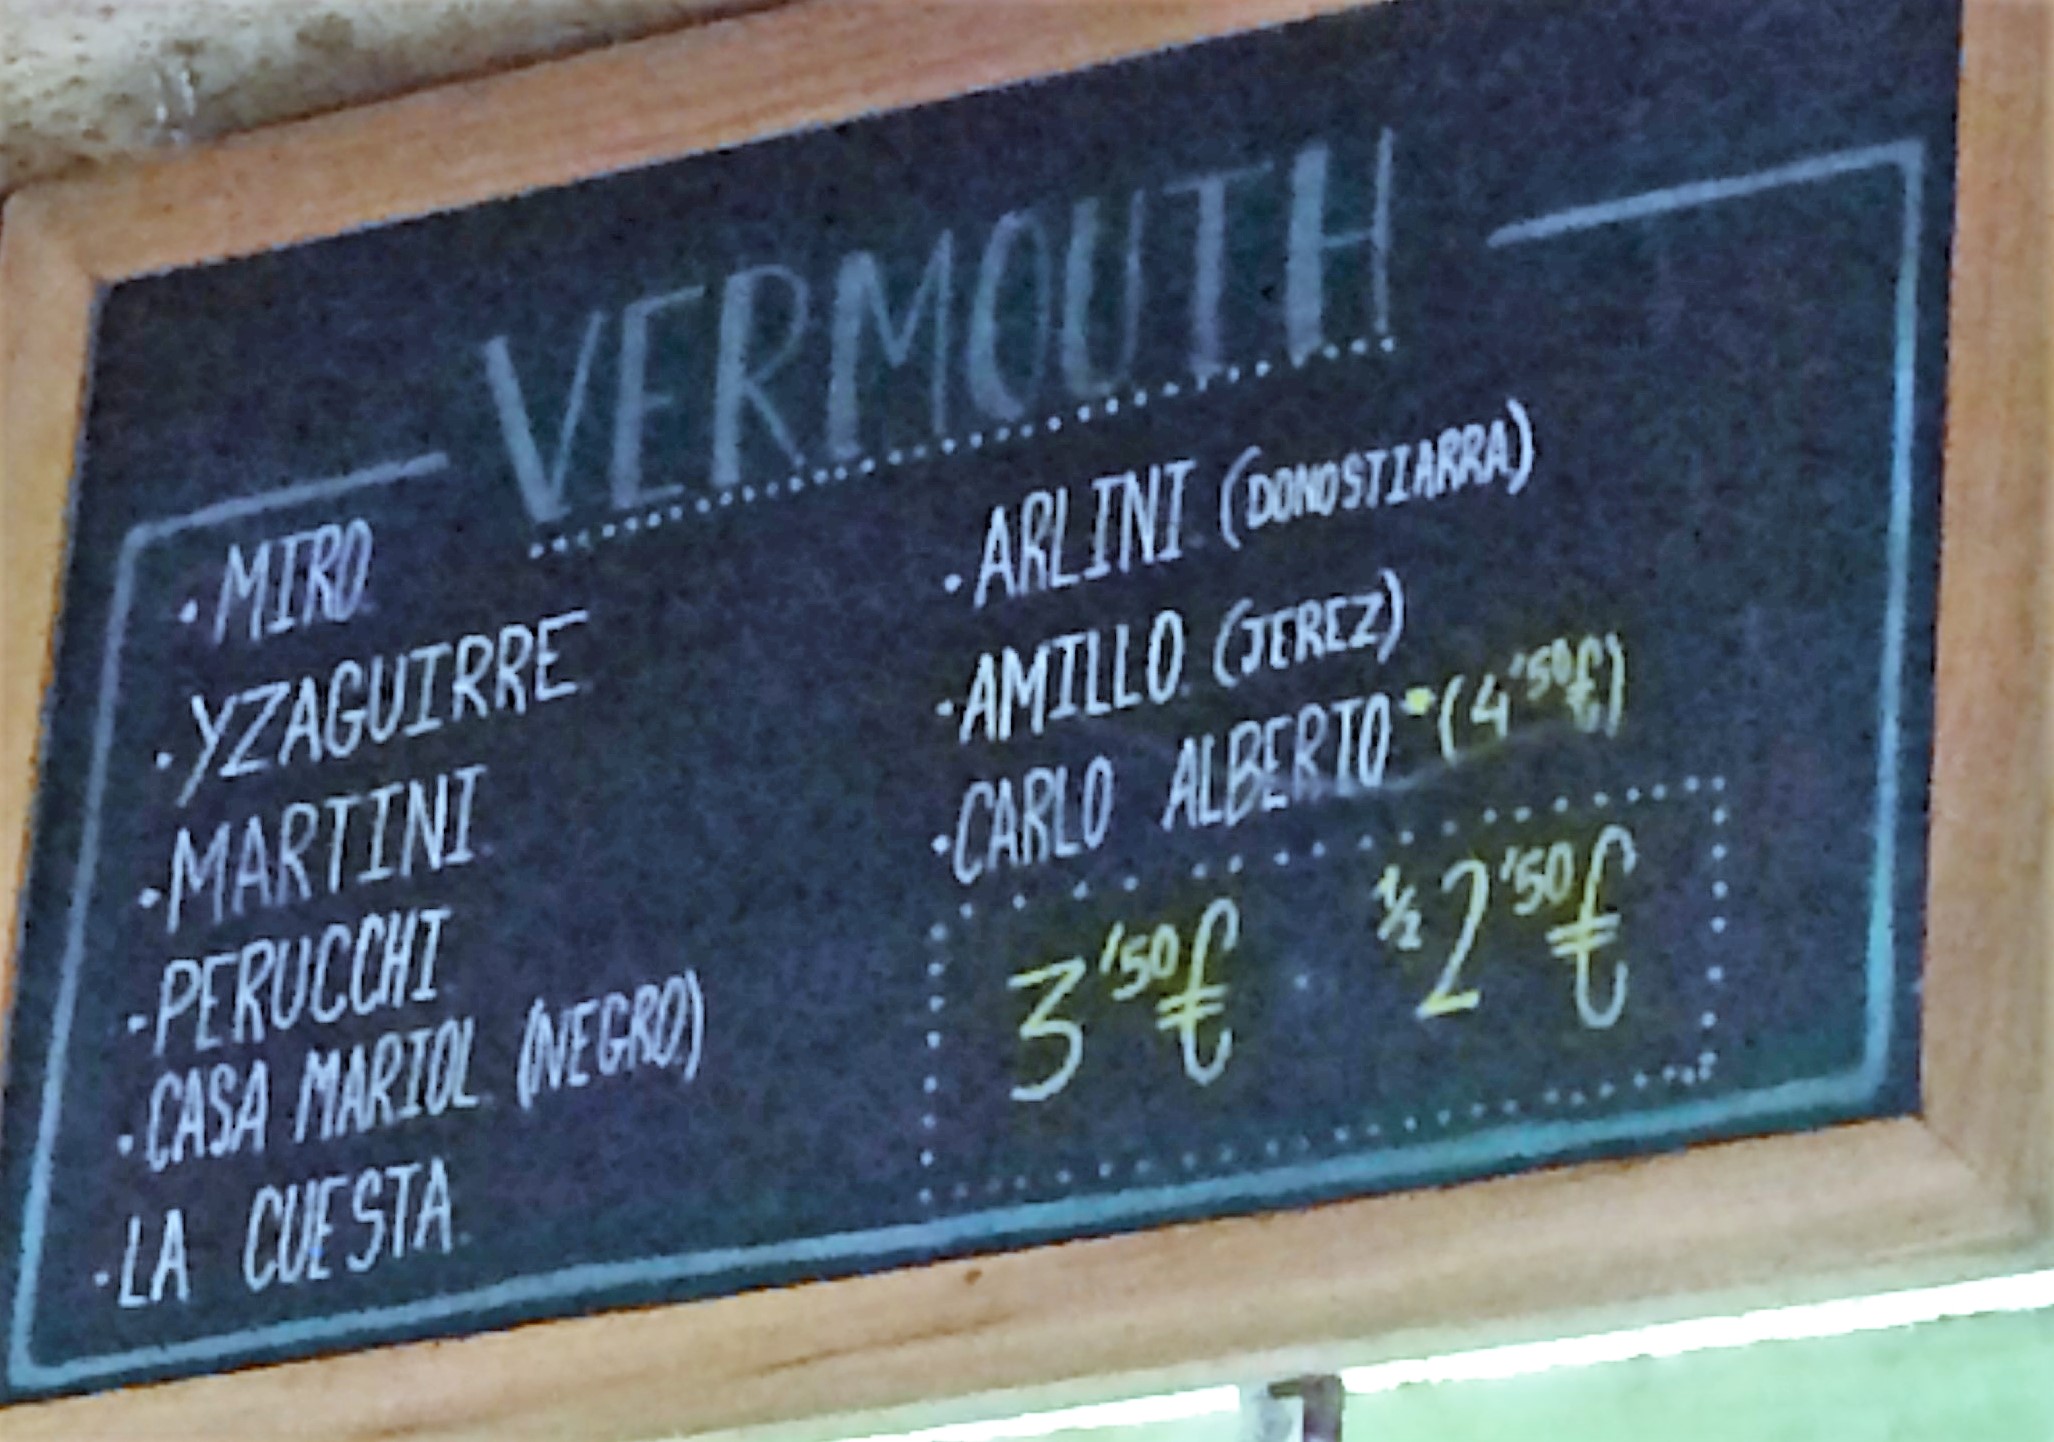 VERMOUTH
· MIRO
· YZAGUIRRE
· MARTINI
· PERUCCHI
· CASA MARIOL (NEGRO)
· LA CUESTA
· ARLINI (DONOSTIARRA)
· AMILLO (JEREZ)
· CARLO ALBERTO * (4'50€)
3'50€ · ½ 2'50€